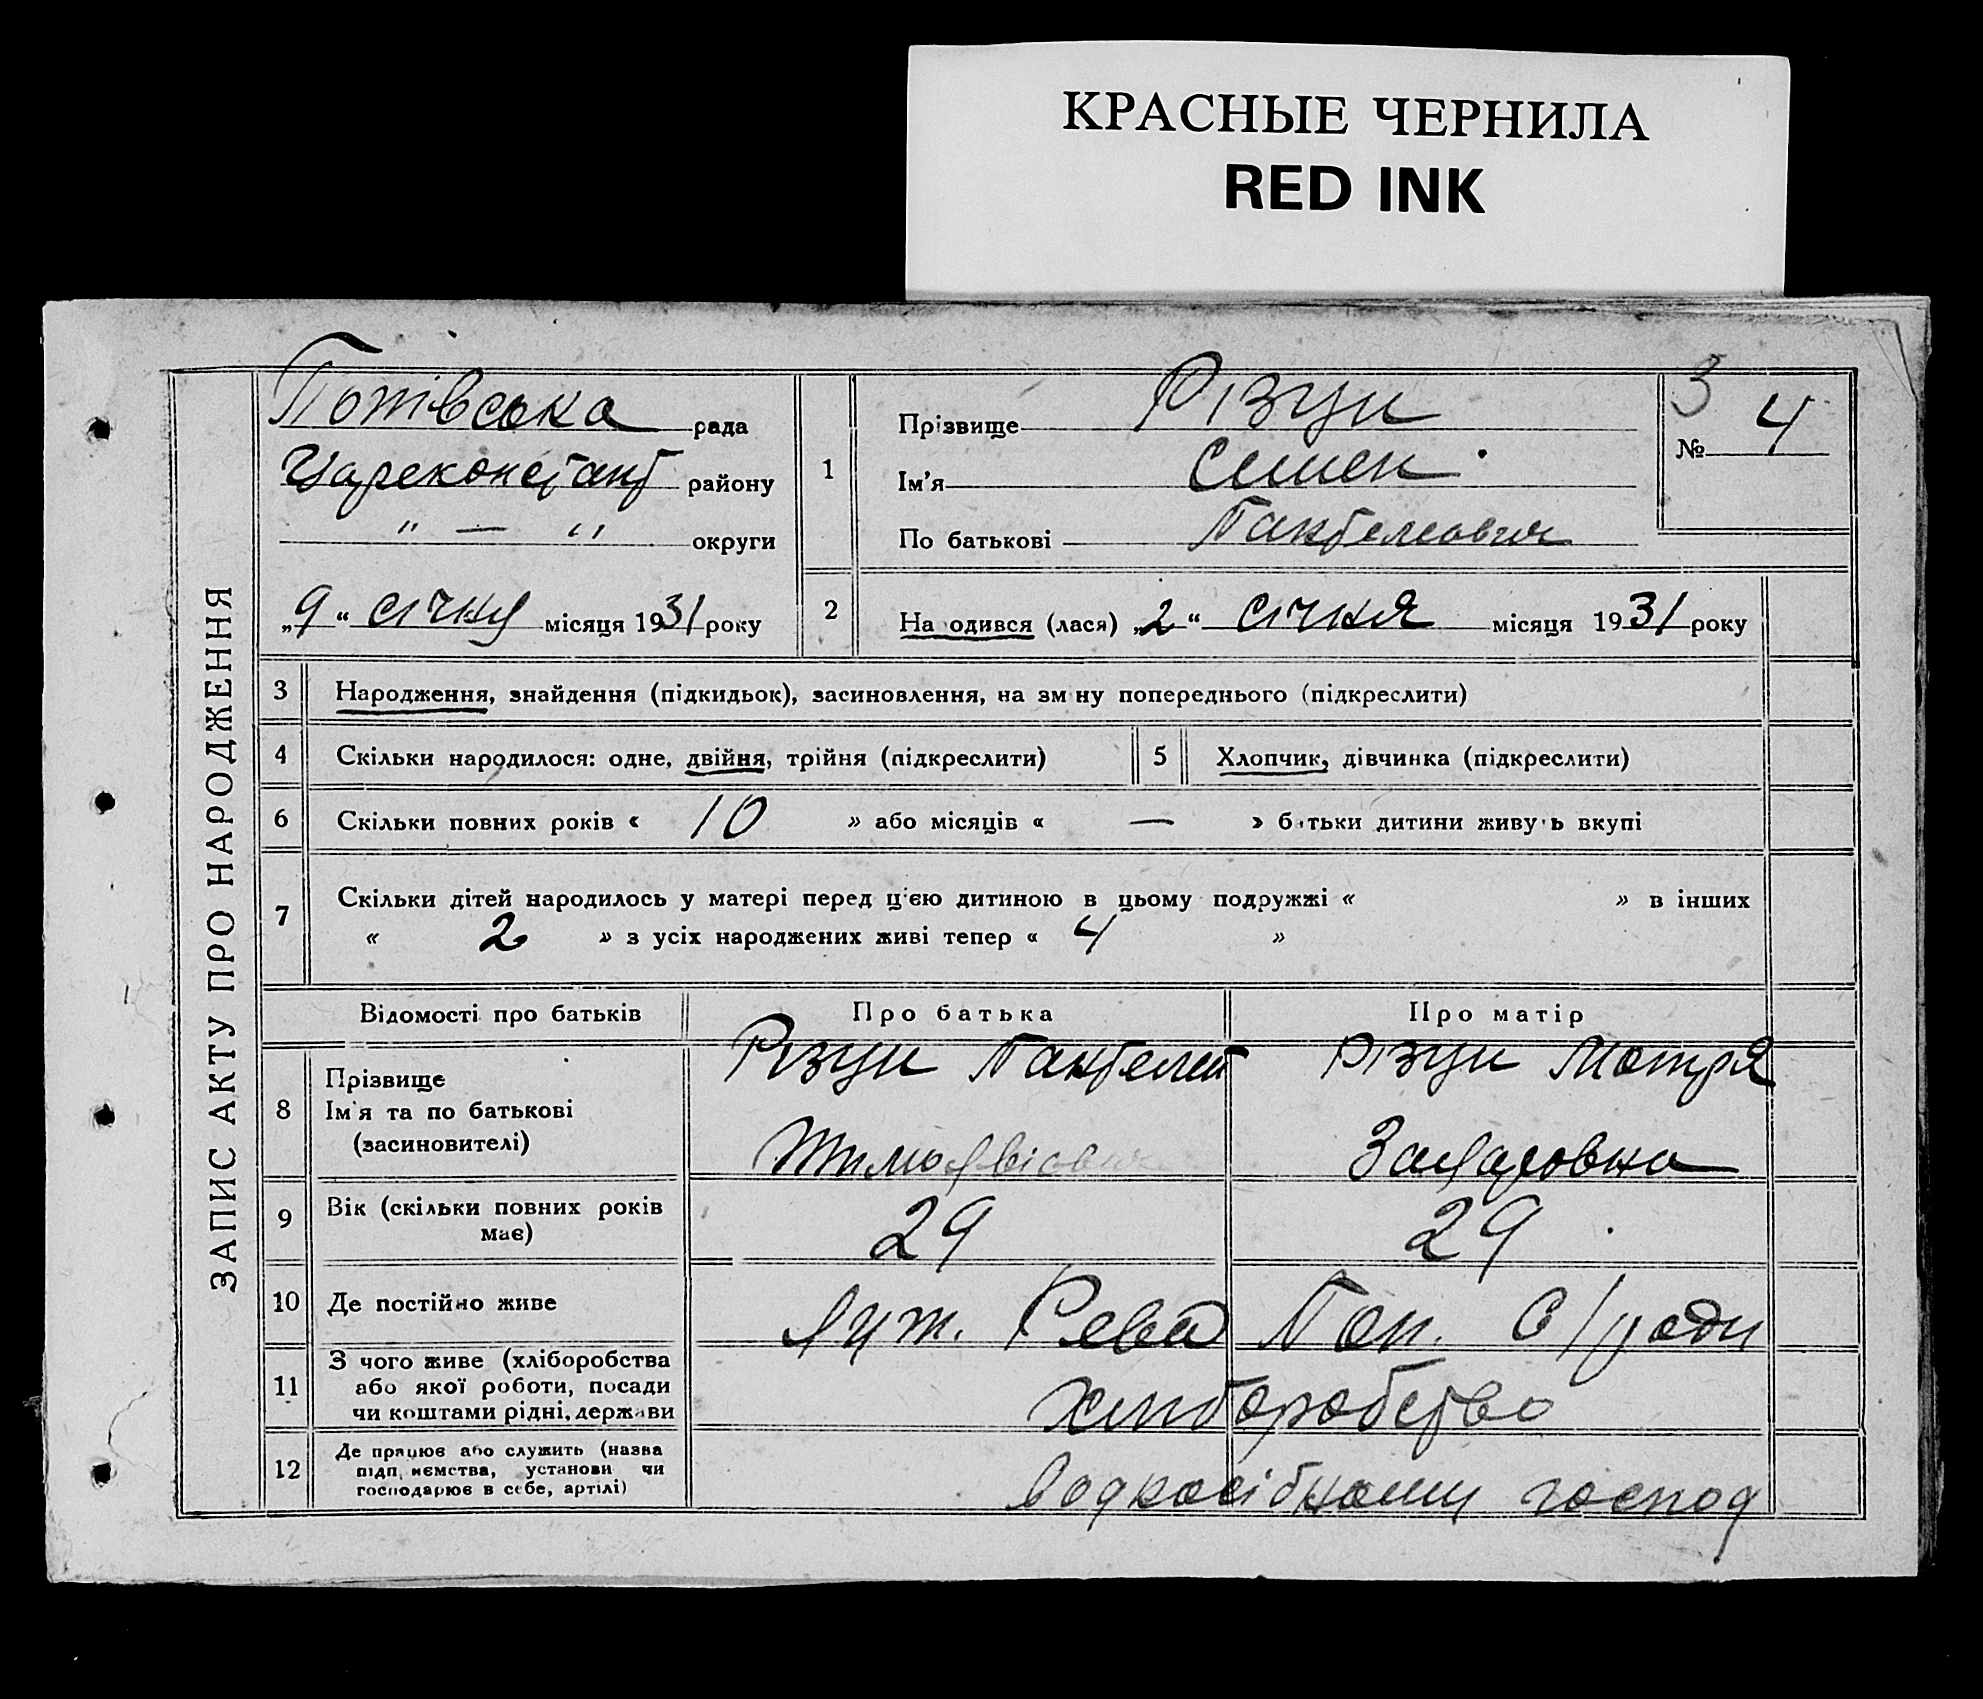 КРАСНЫЕ ЧЕРНИЛА
RED INK
ЗАПИС АКТУ ПРО НАРОДЖЕННЯ
рада
Цареконстант району
" — " округи
„9“ січня місяця 1931 року
1
Прізвище Різун
Ім'я Семен
По батькові
3
№ 4
2 На одився (лася) „2“ січня місяця 1931 року
3 Народження, знайдення (підкидьок), засиновлення, на зм ну попереднього (підкреслити)
4 Скільки народилося: одне, двійня, трійня (підкреслити) 5 Хлопчик, дівчинка (підкреслити)
6 Скільки повних років « 10 » або місяців « — » б тьки дитини живу ь вкупі
7 Скільки дітей народилось у матері перед ц'єю дитиною в цьому подружжі « » в інших
« 2 » з усіх народжених живі тепер « 4 »
Відомості про батьків Про батька Про матір
8 Прізвище
Ім'я та по батькові
(засиновителі)
Різун Пантелей
Різун Мотря
Захаровна
9 Вік (скільки повних років має) 29 29
10 Де постійно живе хут. Рева Поп. с/ради
11 З чого живе (хліборобства
або якої роботи, посади
чи коштами рідні, держави
хліборобство
12 Де працює або служить (назва
підп иємства, установи чи
господарює в себе, артілі)
господ